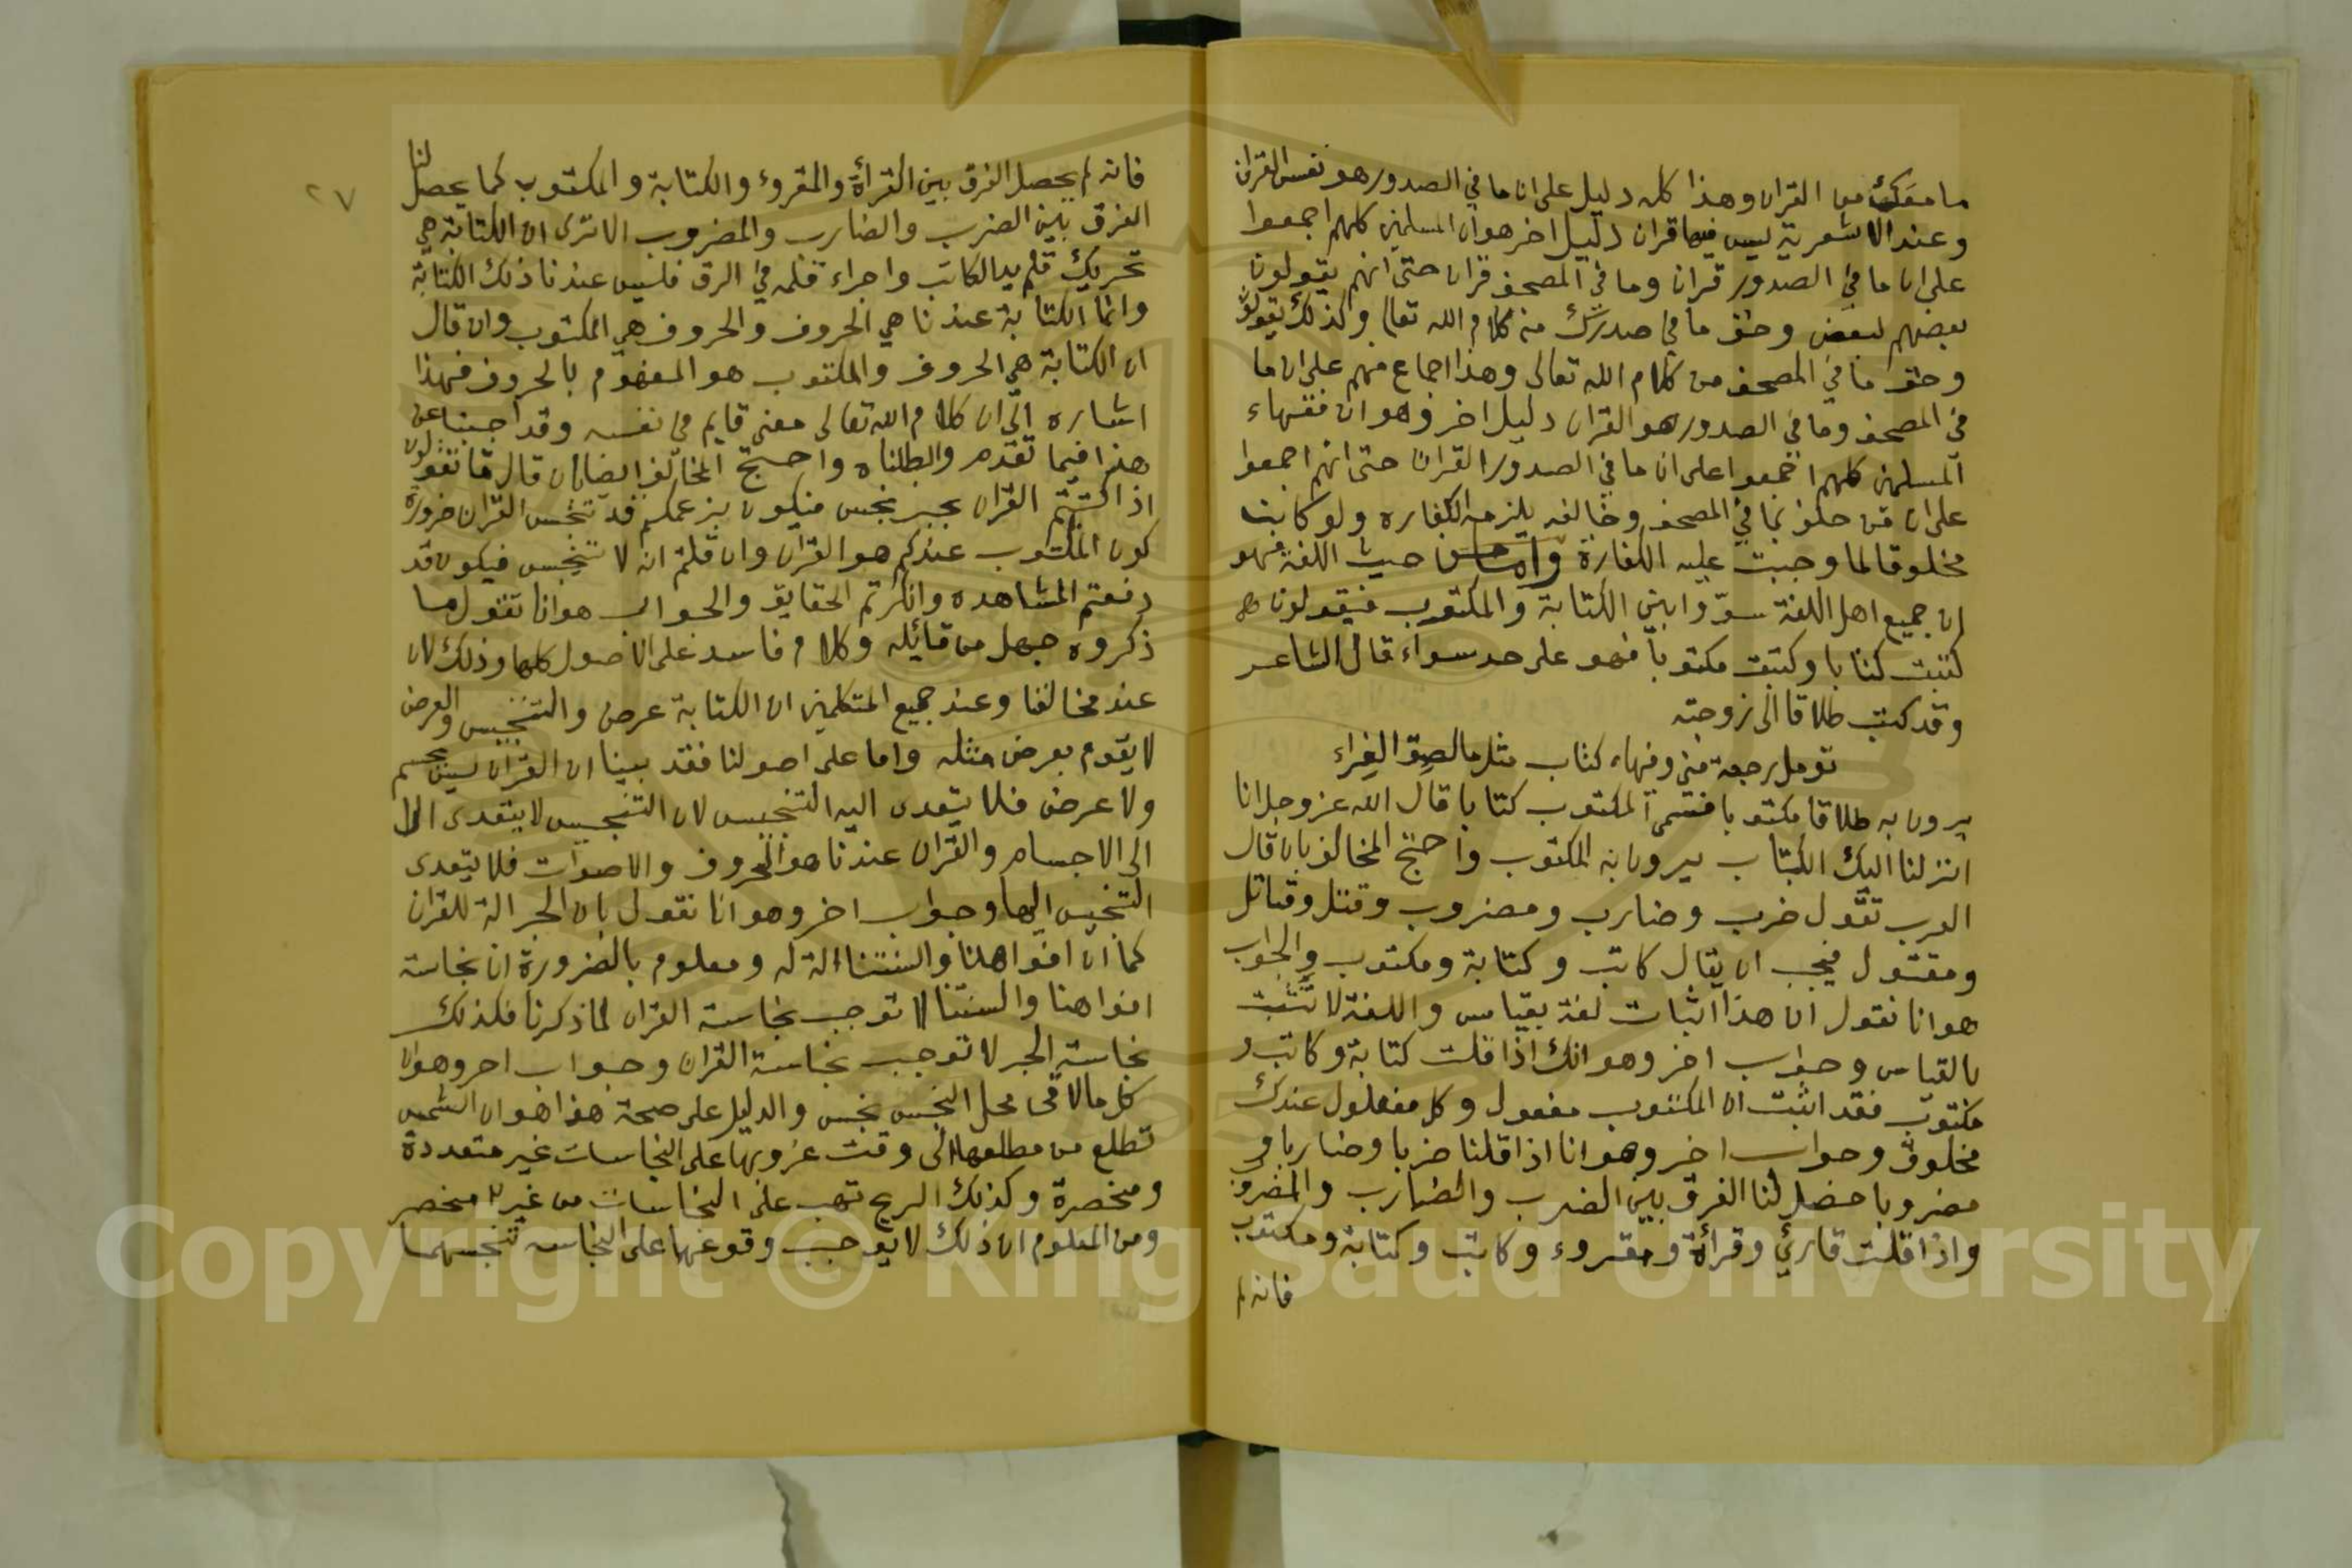 ما معك من القران وهذا كله دليل على ان ما في الصدور هو نفس القران
وعند الاشعرية ليس فيها قران دليل اخر هو ان المسلمين كلهم اجمعوا
على ان ما في الصدور قران وما في المصحف قران حتى انهم يقولون
بعضهم لبعض وحق ما في صدرك من كلام الله تعالى وكذلك يقولون
وحق ما في المصحف من كلام الله تعالى وهذا اجماع منهم على ان ما
في المصحف وما في الصدور هو القران دليل اخر وهو ان فقهاء
المسلمين كلهم اجمعوا على ان ما في الصدور القران حتى انهم اجمعوا
على ان من حلف بما في المصحف وخالف يلزمه الكفاره ولو كانت
مخلوقا لما وجبت عليه الكفارة واما من حيث اللغة فهو
ان جميع اهل اللغة سوّوا بين الكتابة والمكتوب فيقولون
كتبت كتابا وكتبت مكتوبا فهو على حد سواء قال الشاعر
وقد كتبت طلاقا الى زوجته
تومل رجعة مني وفيهاء كتاب مثل ما لصق الغراء
يرون به طلاقا مكتوبا فسمى المكتوب كتابا قال الله عز وجل انا
انزلنا اليك الكتاب يرون به المكتوب واحتج المخالف بان قال
العرب تقول ضرب وضارب ومضروب وقتل وقاتل
ومقتول فيجب ان يقال كاتب وكتابة ومكتوب والجواب
هو انا نقول ان هذا اثبات لغة بقياس واللغة لا تثبت
بالقياس وجواب اخر وهو انك اذا قلت كتابة وكاتب و
مكتوب فقد اثبت ان المكتوب مفعول وكل مفعلول عندك
مخلوق وجواب اخر وهو انا اذا قلنا ضربا وضاربا و
مضروبا حصل لنا الفرق بين الضرب والضارب والمضروب
واذا قلت قارئ وقرأة ومقروء وكاتب وكتابة ومكتوب
فانه لم
٢٧
فانه لم يحصل الفرق بين القرأة والمقروء والكتابة والمكتوب كما يحصل لنا
الفرق بين الضرب والضارب والمضروب الا ترى ان الكتابة هي
تحريك قلم يد الكاتب واجراء قلمه في الرق فليس عندنا ذلك الكتابة
وانما الكتابة عندنا هي الحروف والحروف هي المكتوب وان قال
ان الكتابة هي الحروف والمكتوب هو المفهوم بالحروف فهذا
اشاره الى ان كلام الله تعالى معنى قايم في نفسه وقد اجبنا عن
هذا فيما تقدم وابطلناه واحتج المخالف ايضا بان قال ما تقولون
اذا كتبتم القران بحبر نجس فيكون بزعمكم قد تنجس القران ضرورة
كون المكتوب عندكم هو القران وان قلتم انه لا يتنجس فيكون قد
دفعتم المشاهده وانكرتم الحقايق والجواب هو انا نقول ما
ذكروه جهل من قائله وكلام فاسد على الاصول كلها وذلك لان
عند مخالفنا وعند جميع المتكلمين ان الكتابة عرض والتنجيس والعرض
لا يقوم بعرض مثله واما على اصولنا فقد بينا ان القران ليس بجسم
ولا عرض فلا يتعدى اليه التنجيس لان التنجيس لا يتعدى الا
الى الاجسام والقران عندنا هو الحروف والاصوات فلا يتعدى
التنجيس اليها وجواب اخر وهو انا نقول بان الحبر الة للقران
كما ان افواهنا والسنتنا الة له ومعلوم بالضرورة ان نجاسة
افواهنا والسنتنا لا توجب نجاسة القران لما ذكرنا فكذلك
نجاسة الحبر لا توجب نجاسة القران وجواب اخر وهو ان
كل ما لاقى محل النجس نجس والدليل على صحة هذا هو ان الشمس
تطلع من مطلعها الى وقت غروبها على النجاسات غير متعددة
ومنحصرة وكذلك الريح تهب على النجاسات من غير منحصر
ومن المعلوم ان ذلك لا يوجب وقوعها على النجاسه تنجسهما
Copyright © King Saud University